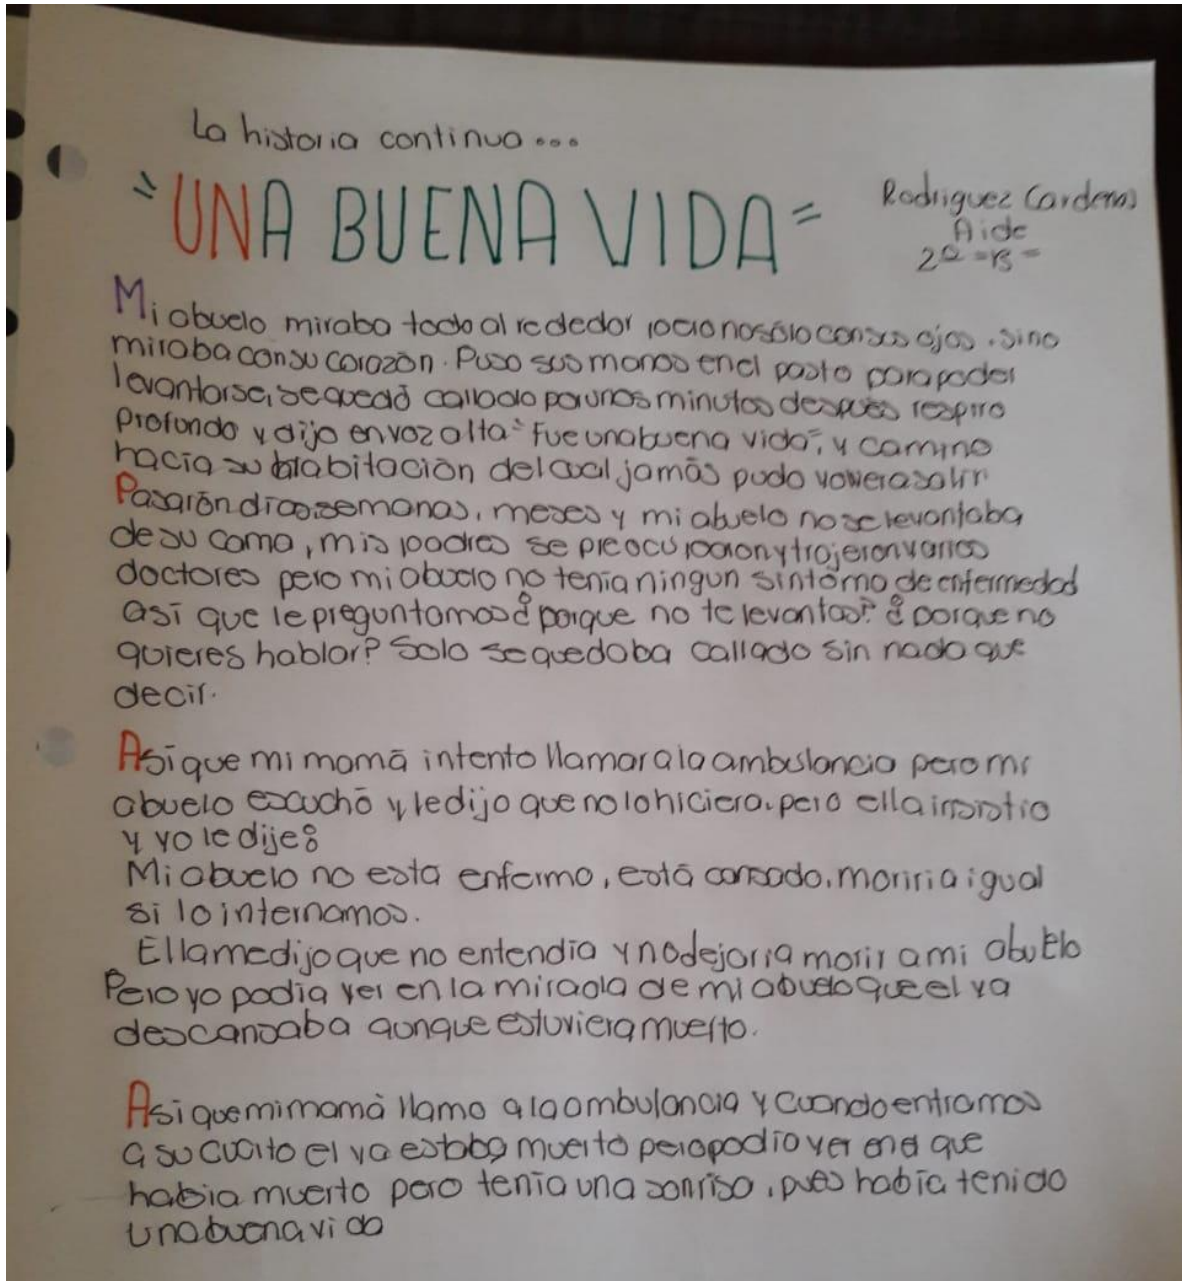 La historia continua...
"UNA BUENA VIDA"
Rodriguez Cardenas
Aide
2º "B"
Mi abuelo miraba todo al rededor pero no sólo con sus ojos, sino
miraba con su corazón. Puso sus manos en el pasto para poder
levantarse, se quedó callado por unos minutos después respiro
profundo y dijo en voz alta "Fue una buena vida", y camino
hacia su habitación del cual jamás pudo volver a salir
Pasarón días, semanas, meses y mi abuelo no se levantaba
de su cama, mis padres se preocuparon y trajeron varios
doctores pero mi abuelo no tenia ningun sintómo de enfermedad
así que le preguntamos ¿porque no te levantas? ¿porque no
quieres hablar? Solo se quedaba callado sin nada que
decir.
Así que mi mamá intento llamar a la ambulancia pero mi
abuelo escuchó y le dijo que no lo hiciera, pero ella insistio
y yo le dije:
Mi abuelo no esta enfermo, está cansado, moriria igual
si lo internamos.
Ella me dijo que no entendía y no dejaria morir a mi abuelo
Pero yo podia ver en la mirada de mi abuelo que el ya
descansaba aunque estuviera muerto.
Asi que mi mamá llamo a la ambulancia y cuando entramos
a su cuarto el ya estaba muerto pero podia ver en el que
habia muerto pero tenía una sonrisa, pues había tenido
una buena vida